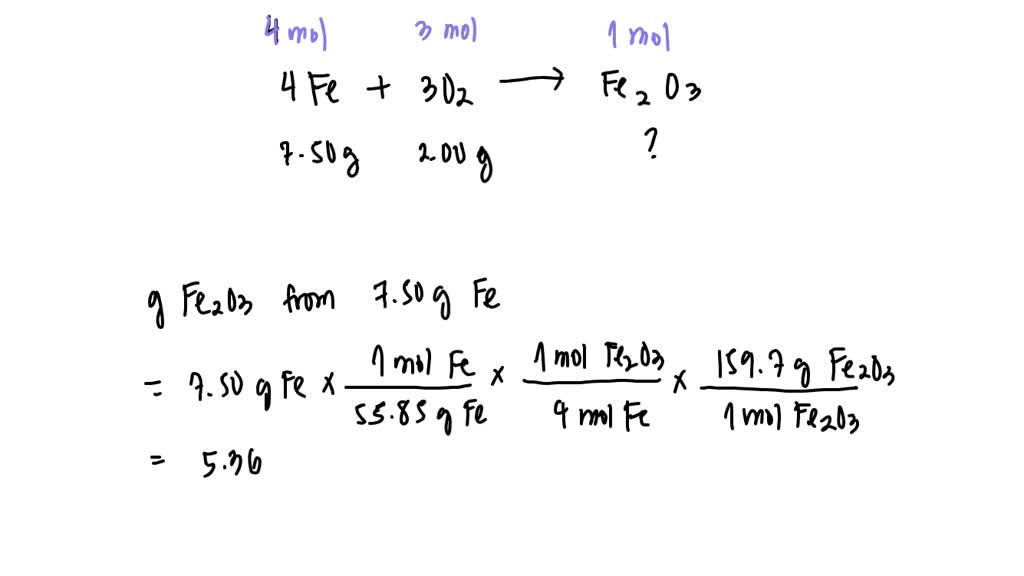 4 mol 3 mol 1 mol
4 Fe + 3O₂ → Fe₂O₃
7.50 g 2.00 g ?
g Fe₂O₃ from 7.50 g Fe
= 7.50 g Fe × (1 mol Fe / 55.85 g Fe) × (1 mol Fe₂O₃ / 4 mol Fe) × (159.7 g Fe₂O₃ / 1 mol Fe₂O₃)
= 5.36